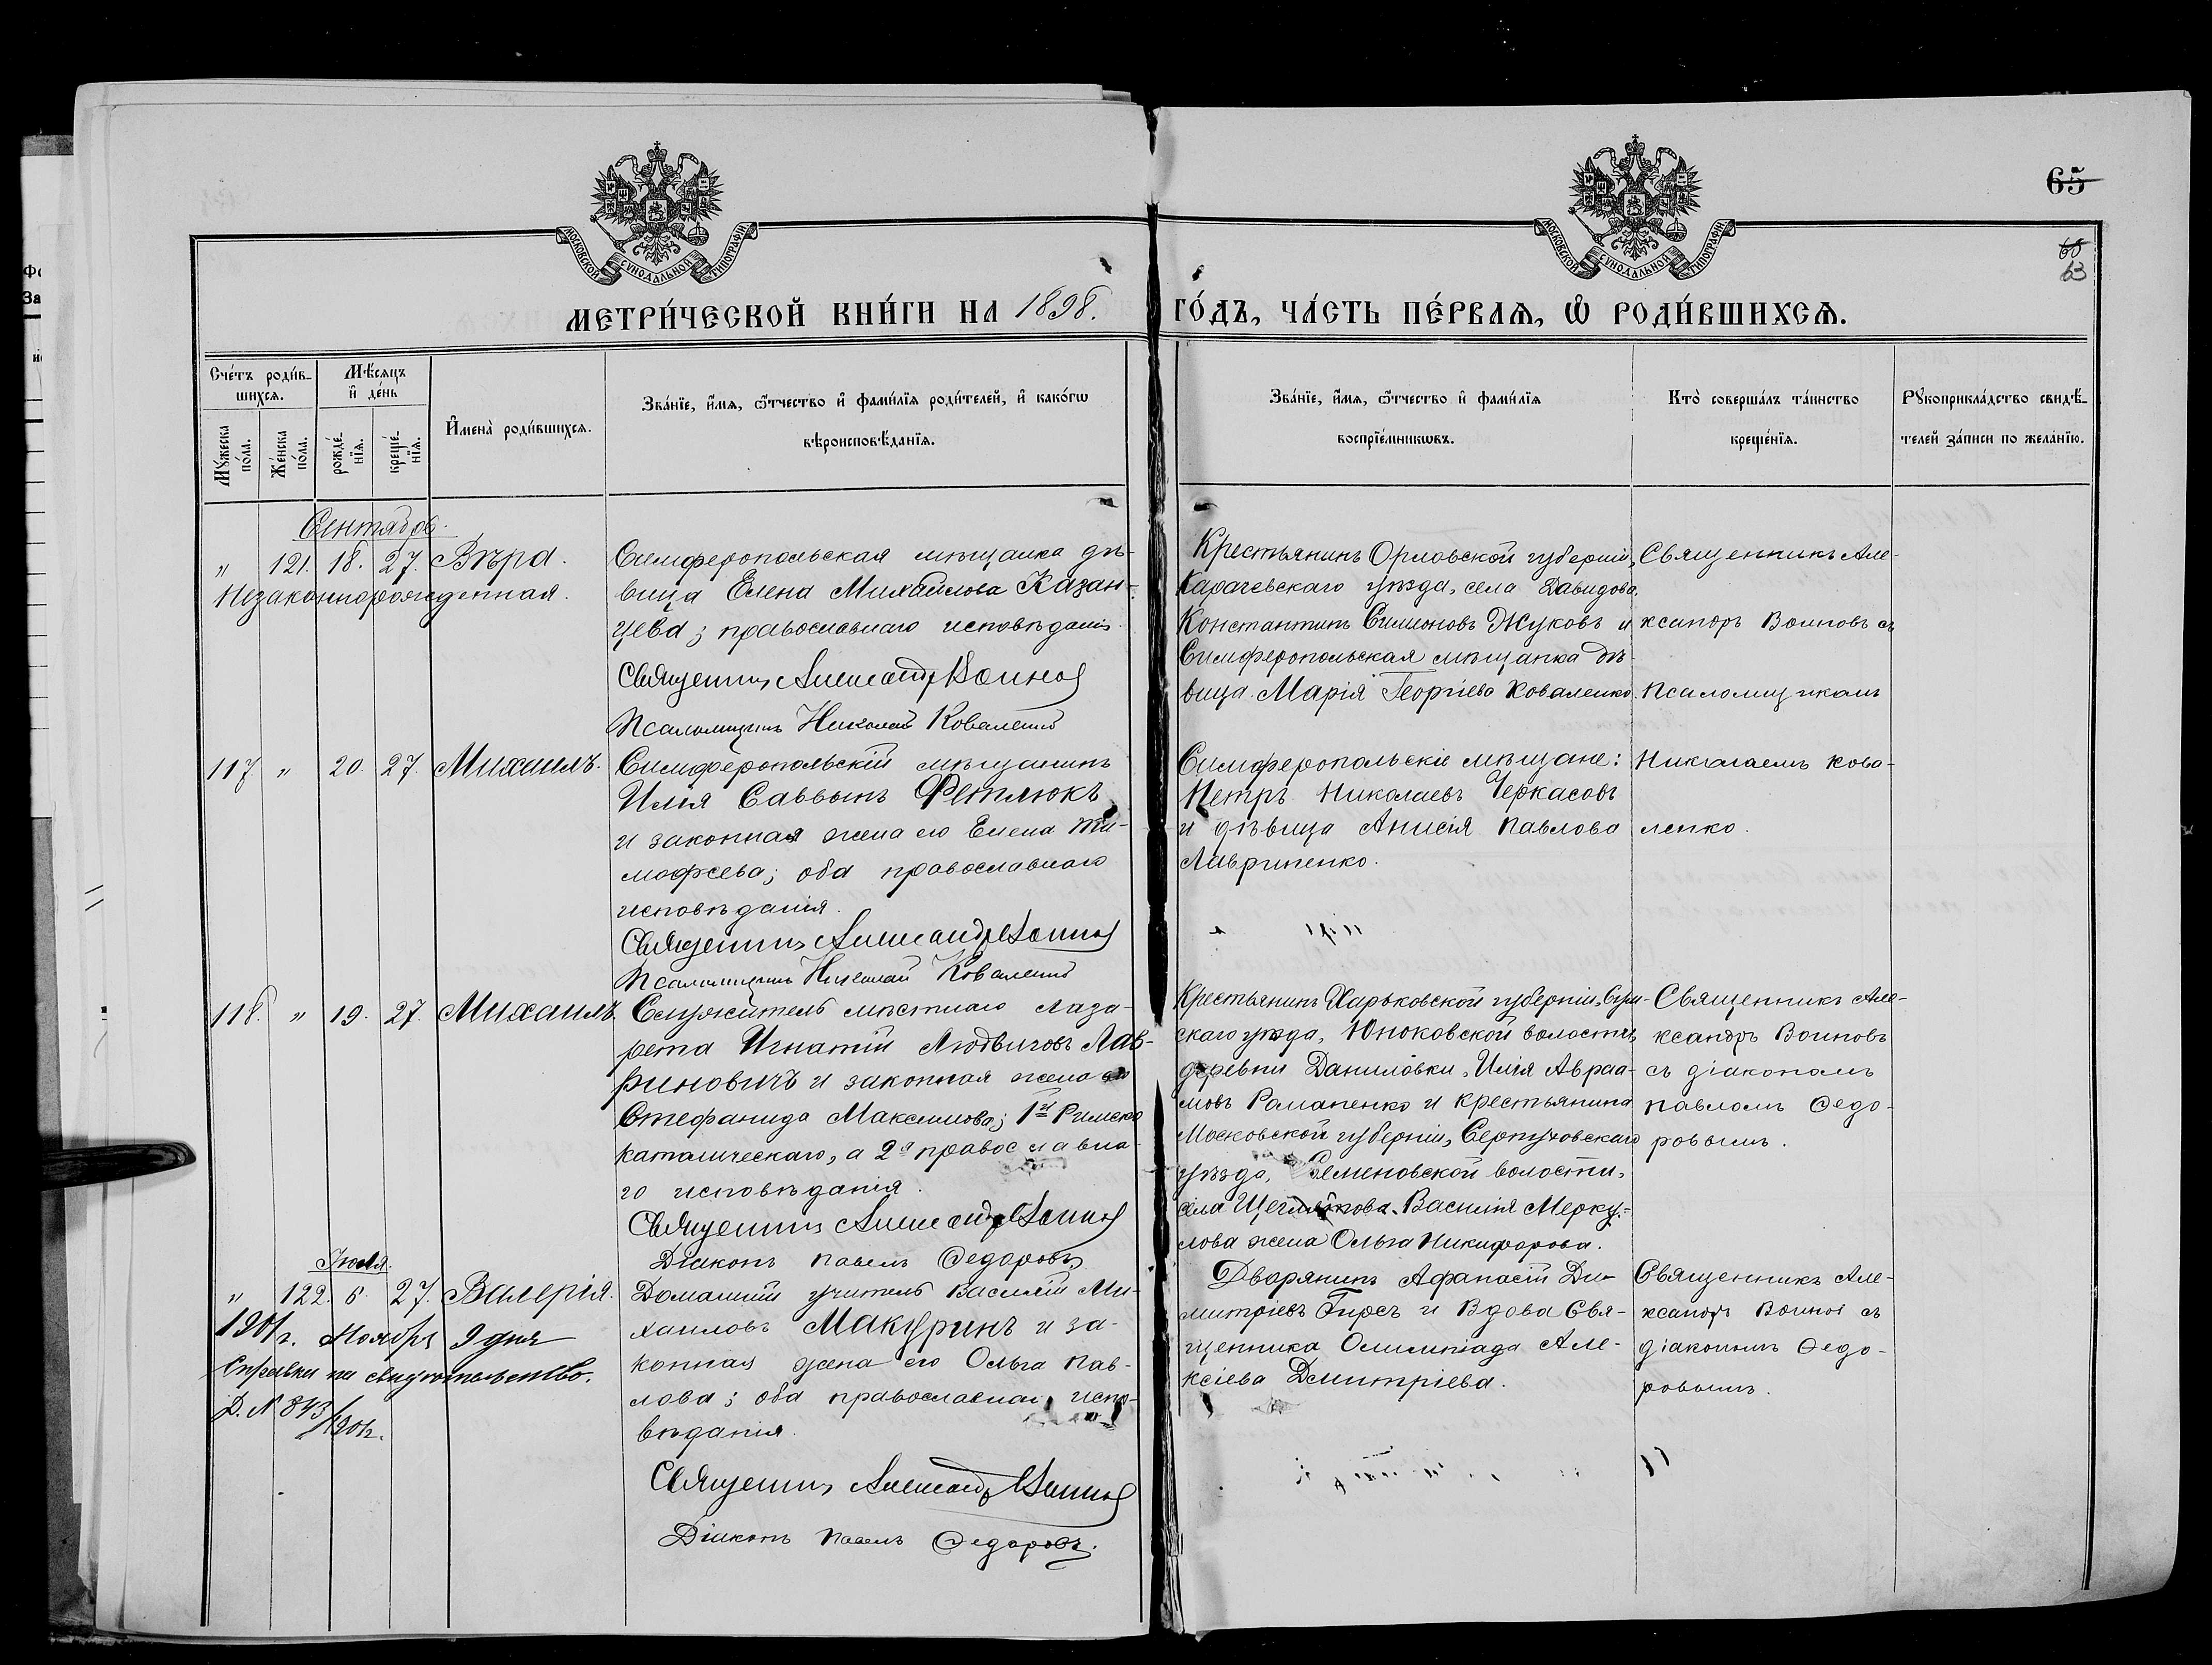 65
68
63
МОСКОВСКОЙ СѴНОДАЛЬНОЙ ТИПОГРАФІИ
МОСКОВСКОЙ СѴНОДАЛЬНОЙ ТИПОГРАФІИ
МЕТРИ́ЧЕСКОЙ КНИ́ГИ НА 1898. ГО́ДЪ, ЧА́СТЬ ПЕ́РВАѦ, Ѡ РОДИ́ВШИХСѦ.
Сче́тъ роди́в-
шихсѧ.
Мѣ́сѧцъ
и҆ де́нь
Мꙋ́жеска по́ла.
Же́нска по́ла.
рожде́нїѧ.
креще́нїѧ.
И҆мена̀ роди́вшихсѧ.
Зва́нїе, и҆́мѧ, ѻ҆́тчество и҆ фами́лїѧ роди́телей, и҆ како́гѡ
вѣроисповѣ́данїѧ.
Зва́нїе, и҆́мѧ, ѻ҆́тчество и҆ фами́лїѧ
воспрїе́мникѡвъ.
Кто̀ соверша́лъ та́инство
креще́нїѧ.
Рꙋкоприкла́дство свидѣ́-
телей за́писи по жела́нїю.
Сентябрь.
" 121. 18. 27. Вѣра.
Незаконнорожденная.
Симферопольская мѣщанка дѣ-
вица Елена Михайлова Казан-
цева; православнаго исповѣданія.
Священникъ Александръ Воиновъ
Псаломщикъ Николай Коваленко
Крестьянинъ Орловской губерніи,
Карачевскаго уѣзда, села Давидова,
Константинъ Симоновъ Жуковъ и
Симферопольская мѣщанка дѣ-
вица Марія Георгіева Коваленко.
Священникъ Але-
ксандръ Воиновъ съ
псаломщикомъ
117. " 20. 27. Михаилъ.
Симферопольскій мѣщанинъ
Илія Саввинъ Фетлюкъ
и законная жена его Елена Ти-
мофеева; оба православнаго
исповѣданія.
Священникъ Александръ Воиновъ
Псаломщикъ Николай Коваленко
Симферопольскіе мѣщане:
Петръ Николаевъ Черкасовъ
и дѣвица Анисія Павлова
Лавриненко.
Николаемъ Кова-
ленко.
118. " 19. 27. Михаилъ.
Служитель мѣстнаго лаза-
рета Игнатій Людвиговъ Лав-
риновичъ и законная жена его
Стефанида Максимова; 1й Римско
католическаго, а 2я православна-
го исповѣданія.
Священникъ Александръ Воиновъ
Діаконъ Павелъ Федоровъ
Крестьянинъ Харьковской губерніи, Сум-
скаго уѣзда, Юнаковской волости,
деревни Даниловки, Илія Авраа-
мовъ Романенко и крестьянина
Московской губерніи, Серпуховскаго
уѣзда, Семеновской волости,
села Щеглятьева Василія Мерку-
лова жена Ольга Никифорова.
Священникъ Але-
ксандръ Воиновъ
съ діакономъ
Павломъ Федо-
ровымъ.
Іюля.
" 122. 6. 27. Валерія.
1901 г. Ноября 9 дня
Справка на свидѣтельство.
Д. № 843/1901г.
Домашній учитель Василій Ми-
хаиловъ Макуринъ и за-
конная жена его Ольга Пав-
лова; оба православнаго испо-
вѣданія.
Священникъ Александръ Воиновъ
Діаконъ Павелъ Федоровъ.
Дворянинъ Афанасій Ди-
митріевъ Гирсъ и вдова свя-
щенника Олимпіада Але-
ксіева Дмитріева.
Священникъ Але-
ксандръ Воиновъ съ
діакономъ Федо-
ровымъ.